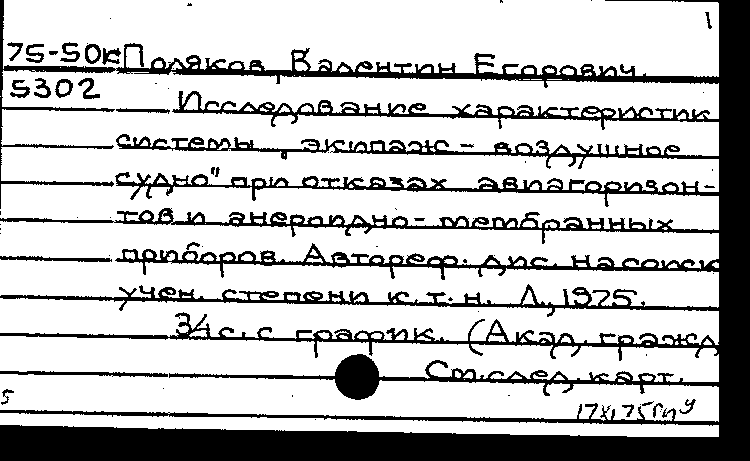 1
75-50к Поляков, Валентин Егорович.
5302 Исследование характеристик
системы „экипаж - воздушное
судно" при отказах авиагоризон-
тов и анероидно-мембранных
приборов. Автореф. дис. на соиск
учен. степени к.т.н. Л., 1975.
34 с. с график. (Акад. гражд
См. след. карт.
5